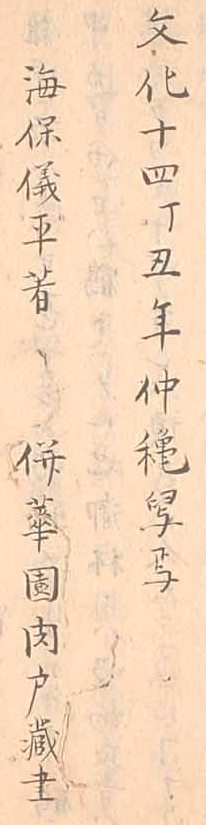 文化十四丁丑年仲穐写焉
海保儀平著　併華園肉戸蔵書